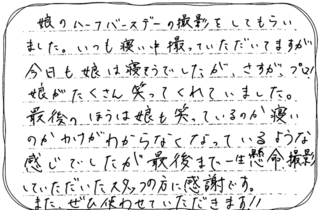 娘のハーフバースデーの撮影をしてもらい
ました。いつも寝い中撮っていただいてますが
今日も娘は寝そうでしたが、さすが、プロ！
娘がたくさん笑ってくれていました。
最後の、ほうは娘も笑っているのか寝い
のか何かがわからなくなっているような
感じでしたが最後まで一生懸命、撮影
していただいたスタッフの方に感謝です。
また、ぜひ使わせていただきます!!